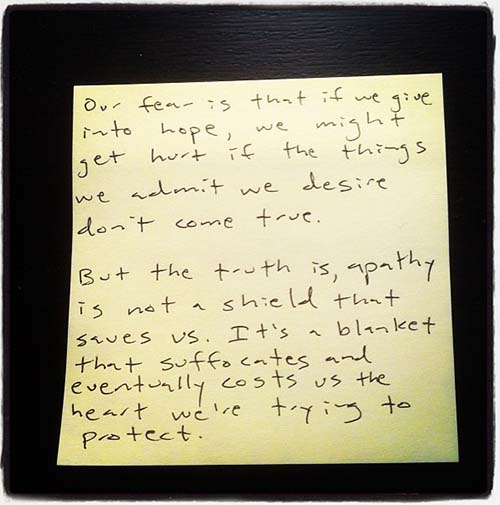 Our fear is that if we give
into hope, we might
get hurt if the things
we admit we desire
don't come true.
But the truth is, apathy
is not a shield that
saves us. It's a blanket
that suffocates and
eventually costs us the
heart we're trying to
protect.